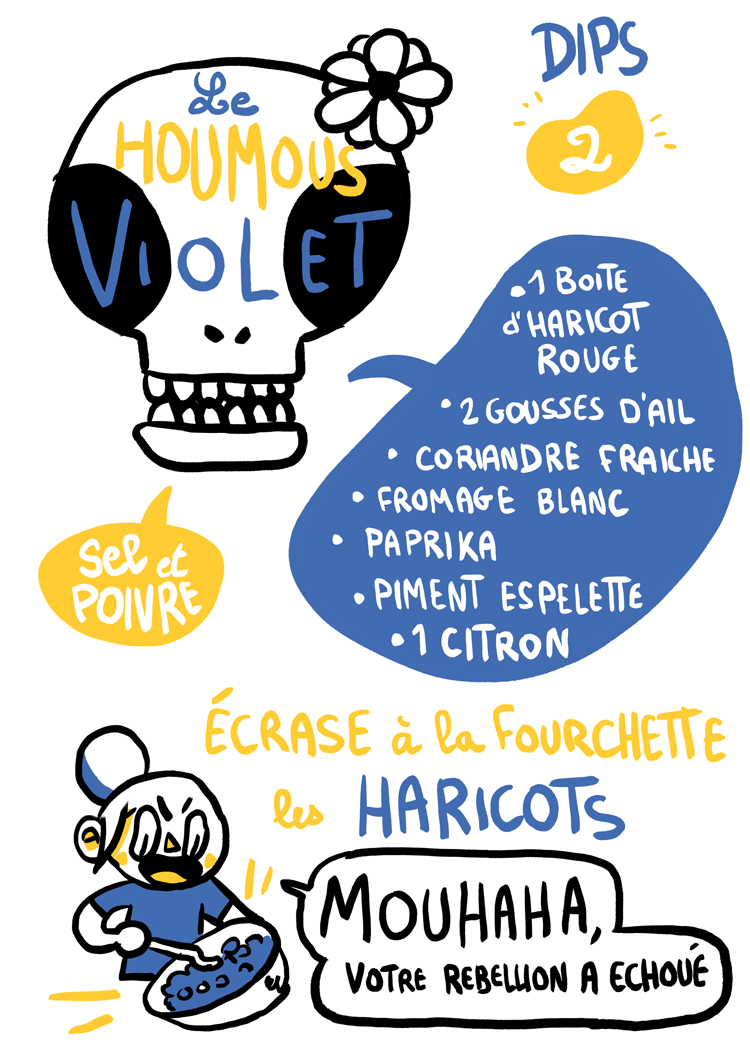 Le
HOUMOUS
VIOLET
DIPS
2
• 1 BOITE
d'HARICOT
ROUGE
• 2 GOUSSES D'AIL
• CORIANDRE FRAICHE
• FROMAGE BLANC
• PAPRIKA
• PIMENT ESPELETTE
• 1 CITRON
Sel et
POIVRE
ÉCRASE à la FOURCHETTE
les HARICOTS
MOUHAHA,
VOTRE REBELLION A ECHOUÉ